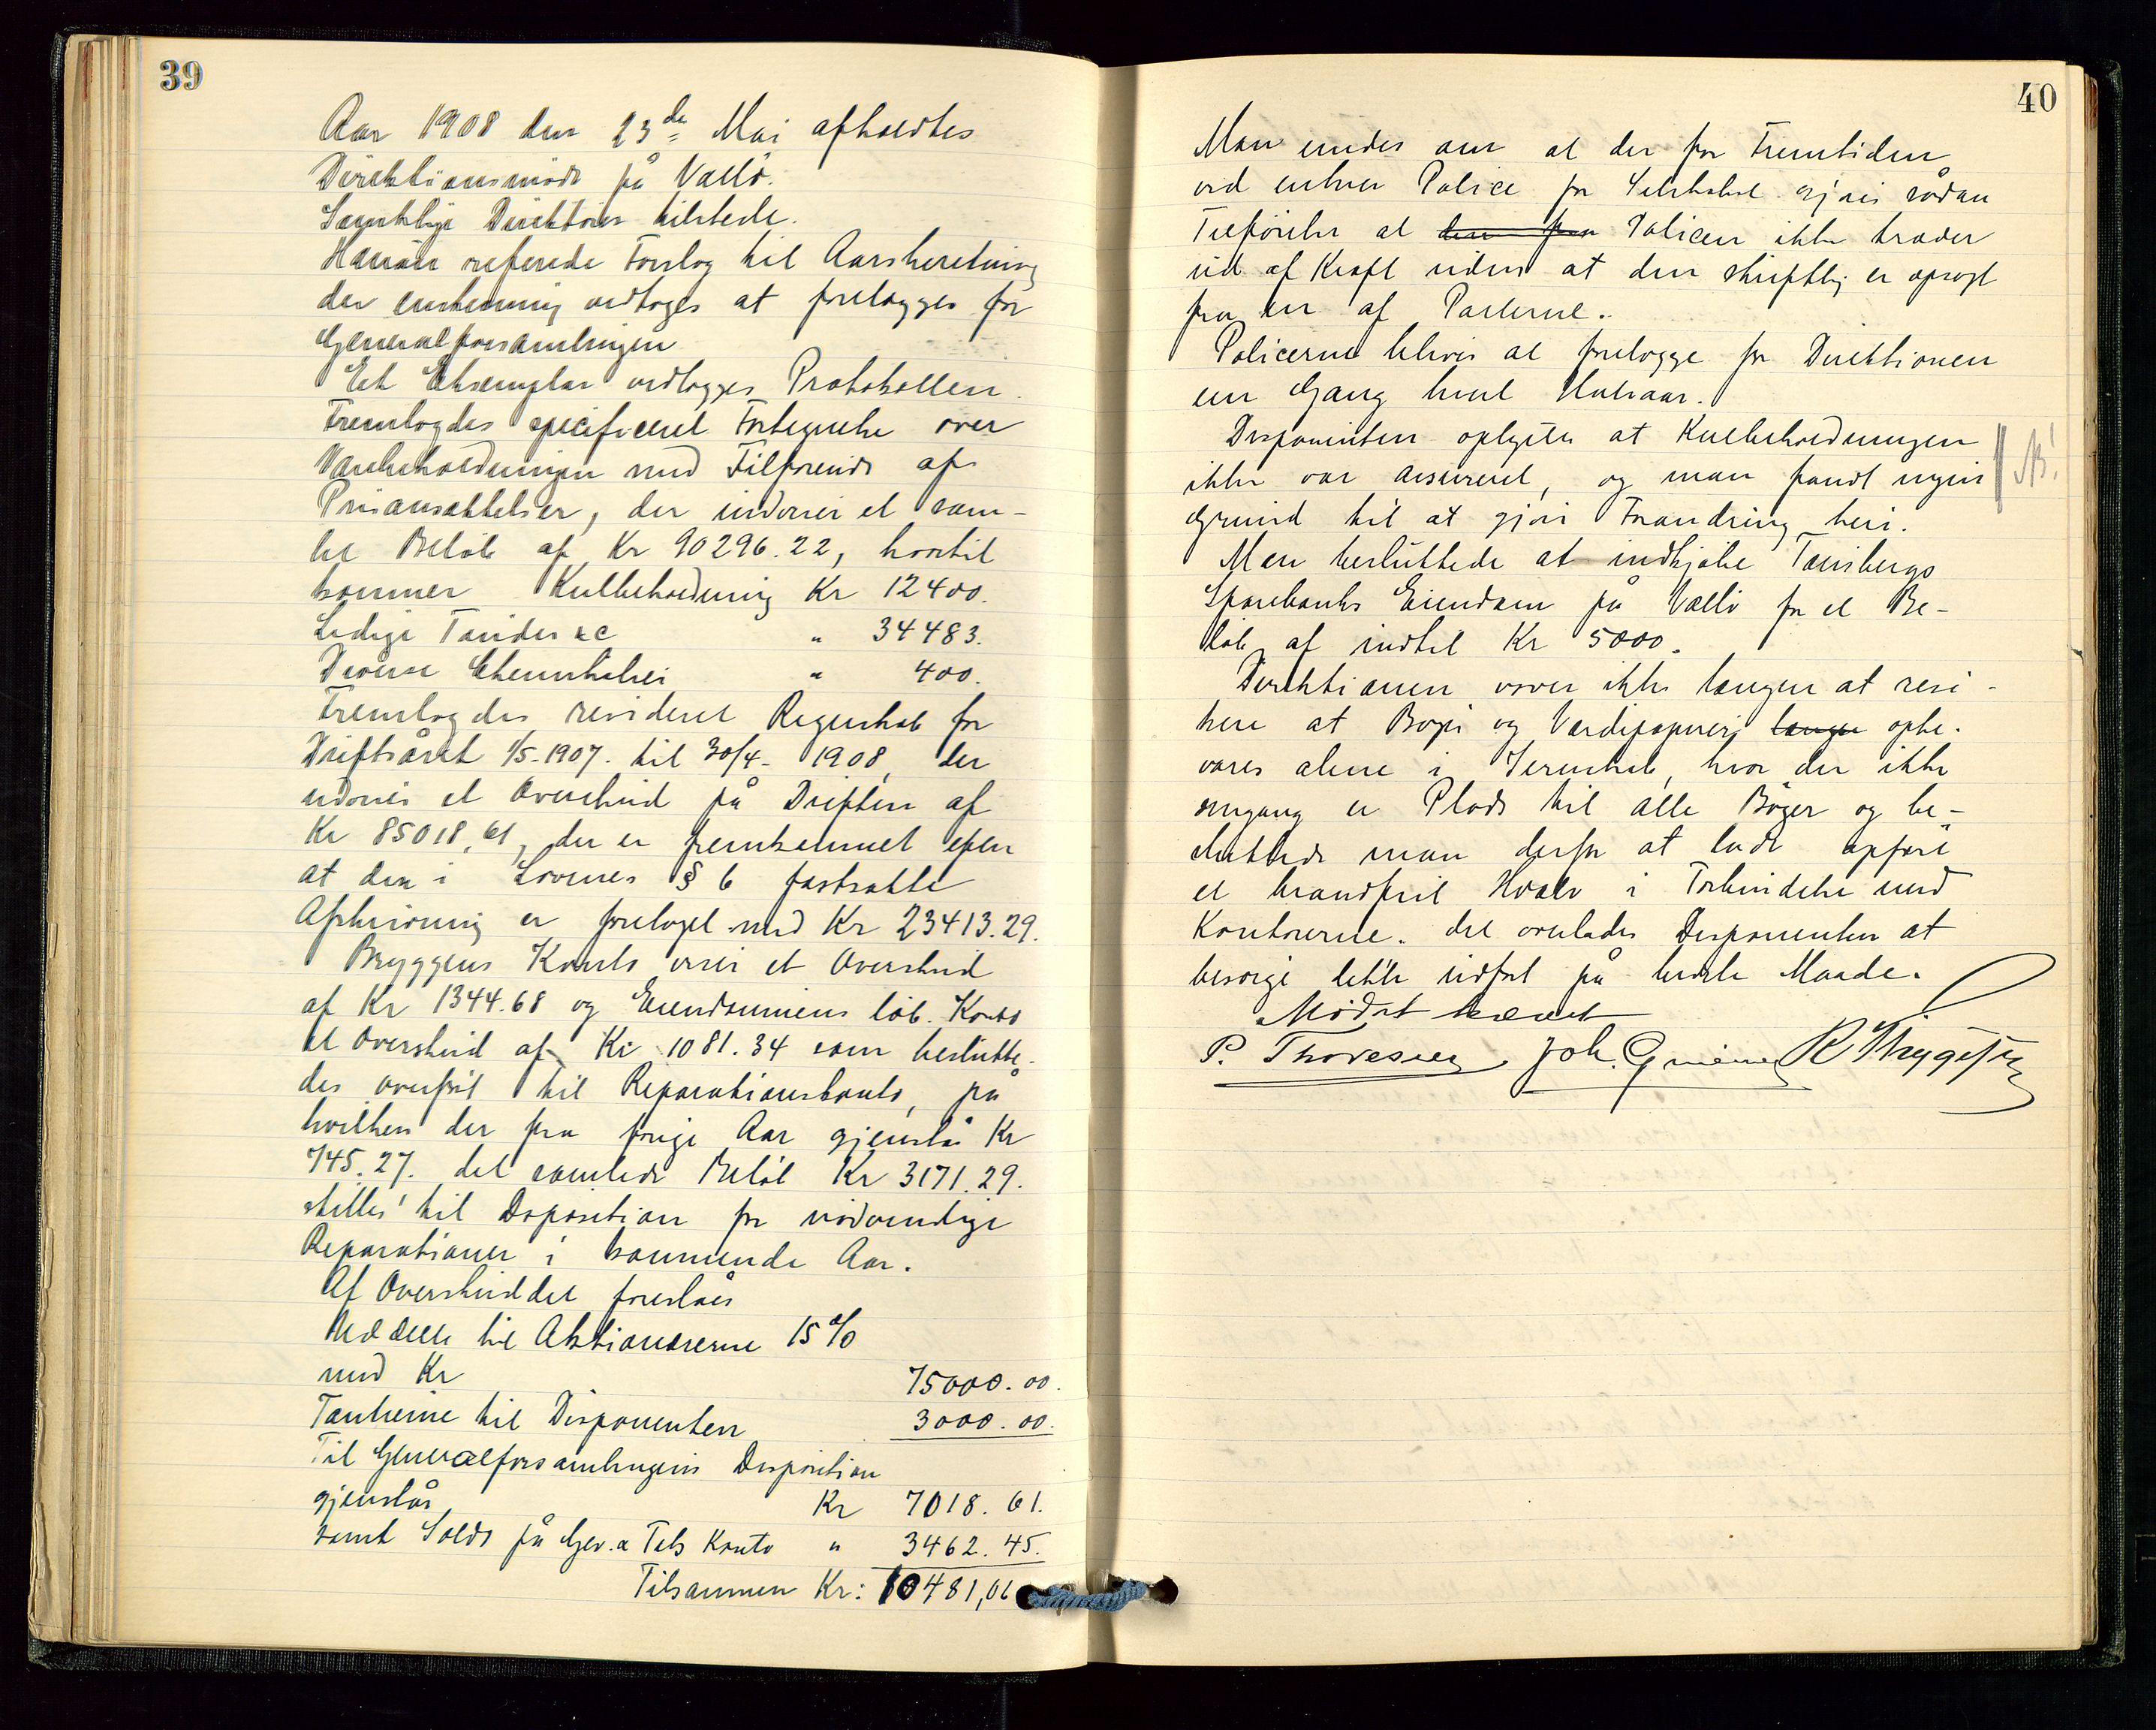 39
Aar 1908 den 23de Mai afholdtes
Direktionsmöde på Vallö.
Samtlige Direktörer tilstede.
refererede Forslag til Aarsberetning
der enstemmig vedtoges at forelægges for
Generalforsamlingen
Et Eksemplar vedlægges Protokollen.
Fremlagdes specificeret Fortegnelse over
Varebeholdningen med Tilföiende af
Prisansættelser, der udviser et sam-
let Belöb af Kr 90296.22, hvortil
kommer Kulbeholdning Kr 12400.
Ledige Tönder &c " 34483.
Diverse Chemikalier " 400.
Fremlagdes revideret Regnskab for
Driftsåret 1/5-1907. til 30/4- 1908, der
udviser et Overskud på Driften af
Kr 85018.61, der er fremkommet efter
at den i Lovenes § 6 fastsatte
Afskrivning er foretaget med Kr 23413.29.
Bryggens Konto viser et Overskud
af Kr 1344.68 og Eiendommens löb. Konto
et Overskud af Kr 1081.34 som beslutte-
des overfört til Reparationskonto, på
hvilken der fra forrige Aar gjenstår Kr
745.27. det samlede Belöb Kr 3171.29.
stilles til Disposition for nödvendige
Reparationer i kommende Aar.
Af Overskuddet foreslåes
Uddelt til Aktionærerne 15 %
med Kr 75000.00.
Tantieme til Disponenten 3000.00.
Til Generalforsamlingens Disposition
gjenstår Kr 7018.61.
samt Saldo på Gev. & Tabs Konto " 3462.45.
Tilsammen Kr: 10481,06
40
Man enedes om at der for Fremtiden
ved enhver Police for Selskabet gjöres sådan
Tilföielse at den fra Policen ikke træder
ud af Kraft uden at den skriftlig er opsagt
fra en af Parterne.
Policerne bliver at forelægge for Direktionen
en Gang hvert Halvaar.
Disponenten oplyste at Kulbeholdningen
ikke var assureret, og man fandt ingen
Grund til at gjöre Forandring heri.
NB!
Man besluttede at indkjöbe Tönsbergs
Sparebanks Eiendom på Vallö for et Be-
löb af indtil Kr 5000.
Direktionen vover ikke længer at risi-
kere at Böger og Værdipapirer længer opbe-
vares alene i Jernskab, hvor der ikke
engang er Plads til alle Böger og be-
sluttede man derfor at lade opföre
et brandfrit Hvælv i Forbindelse med
Kontorerne. det overlades Disponenten at
besörge dette udfört på bedste Maade.
Mödet hævet
P. Thoresen Joh. Grüner R Thrygesen